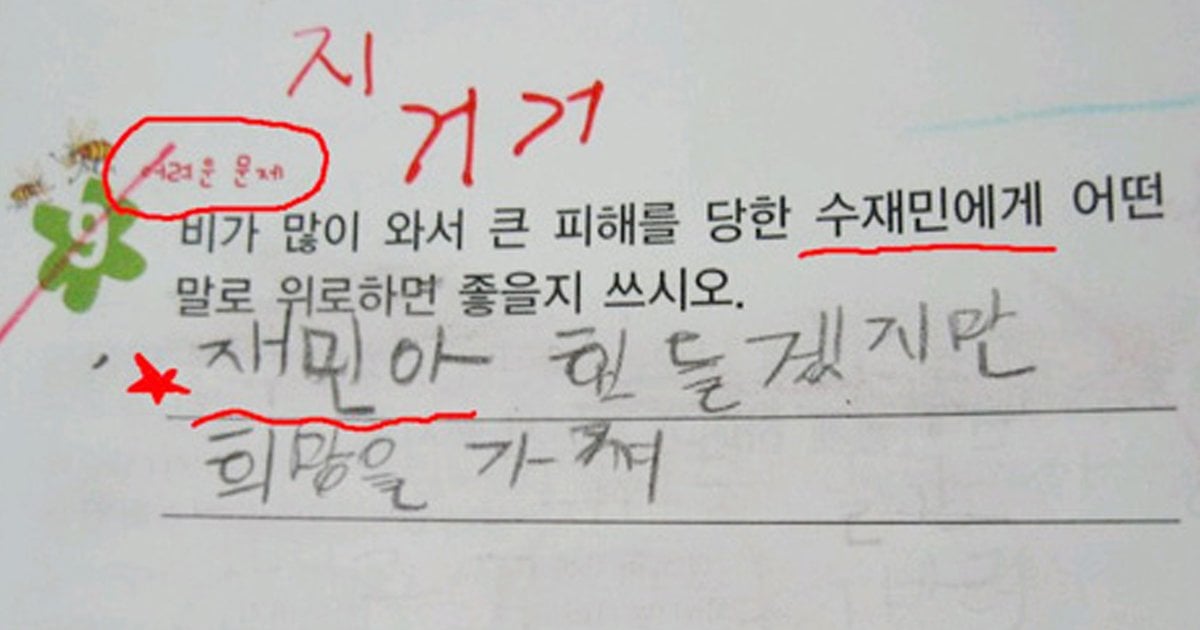 지 거거
어려운 문제
9
비가 많이 와서 큰 피해를 당한 수재민에게 어떤
말로 위로하면 좋을지 쓰시오.
재민아 힌들겠지만
희망을 가져